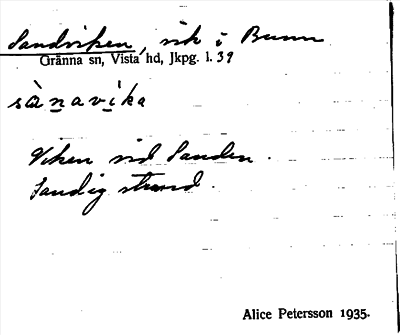 Sandviken, vik i Bunn
Gränna sn, Vista hd, Jkpg. l. 39
sànavika
Viken vid Sanden.
Sandig strand.
Alice Petersson 1935.